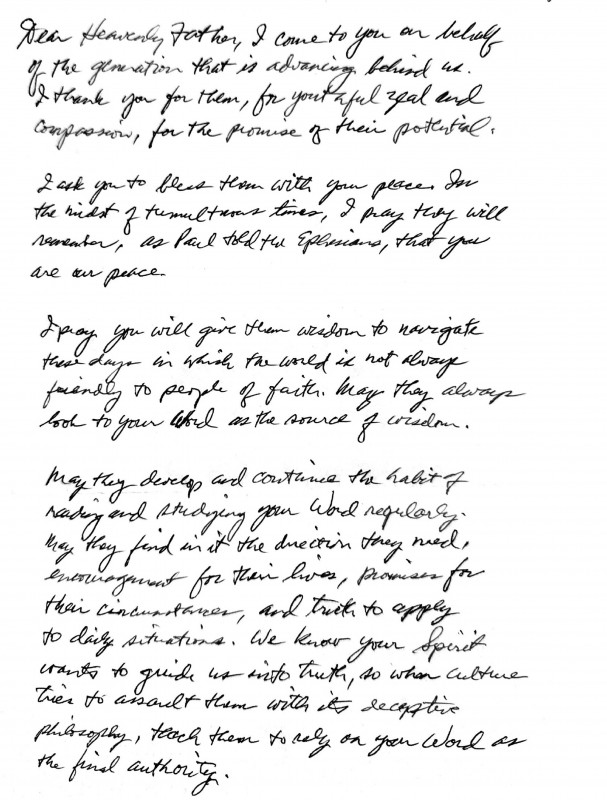 Dear Heavenly Father, I come to you on behalf
of the generation that is advancing behind us.
I thank you for them, for youthful zeal and
compassion, for the promise of their potential.
I ask you to bless them with your peace. In
the midst of tumultuous times, I pray they will
remember, as Paul told the Ephesians, that you
are our peace.
I pray you will give them wisdom to navigate
these days in which the world is not always
friendly to people of faith. May they always
look to your Word as the source of wisdom.
May they develop and continue the habit of
reading and studying your Word regularly.
May they find in it the direction they need,
encouragement for their lives, promises for
their circumstances, and truth to apply
to daily situations. We know your Spirit
wants to guide us into truth, so when culture
tries to assault them with its deceptive
philosophy, teach them to rely on your Word as
the final authority.